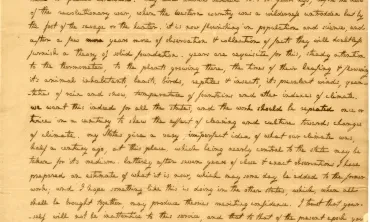 of the revolutionary war, when the Western country was a wilderness untrodden but by
the feet of the savage or the hunter. it is now flourishing in population and science and
after a few more years more of observation & collection of facts they will doubtless
furnish a theory of solid foundation. years are requisite for this, steady attention
to the thermometer, to the plants growing there, the times of their leafing & flowering
it's animal inhabitants, beasts, birds, reptiles & insects, it's prevalent winds, quan-
tities of rain and snow, temperature of fountains and other indexes of climate.
we want this indeed for all the states, and the work should be repeated once or
twice in a century to shew the effect of clearing and culture towards changes
of climate. my Notes give a very imperfect idea of what our climate was,
half a century ago, at this place, which being nearly central to the state may be
taken for it's medium. latterly after seven years of close & exact observations I have
prepared an estimate of what it is now, which may some day be added to the former
work; and I hope something like this is doing in the other states, which, when all
shall be brought together may produce theories meriting confidence. I trust that your-
-self will not be inattentive to this service and that to that of the present epoch you